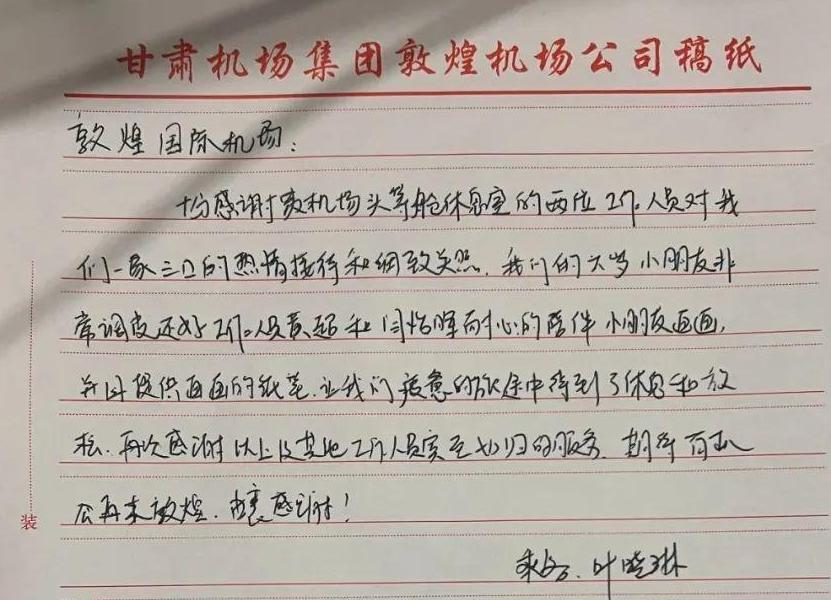 甘肃机场集团敦煌机场公司稿纸
敦煌国际机场:
十分感谢贵机场头等舱休息室的两位工作人员对我
们一家三口的热情接待和细致关照,我们的六岁小朋友非
常调皮还好工作人员黄超和闫怡晖耐心的陪伴小朋友画画,
并且提供画画的纸笔,让我们疲惫的旅途中得到了休息和放
松,再次感谢以上及其他工作人员宾至如归的服务,期待有机
会再来敦煌,由衷感谢!
乘客:叶晓琳
装